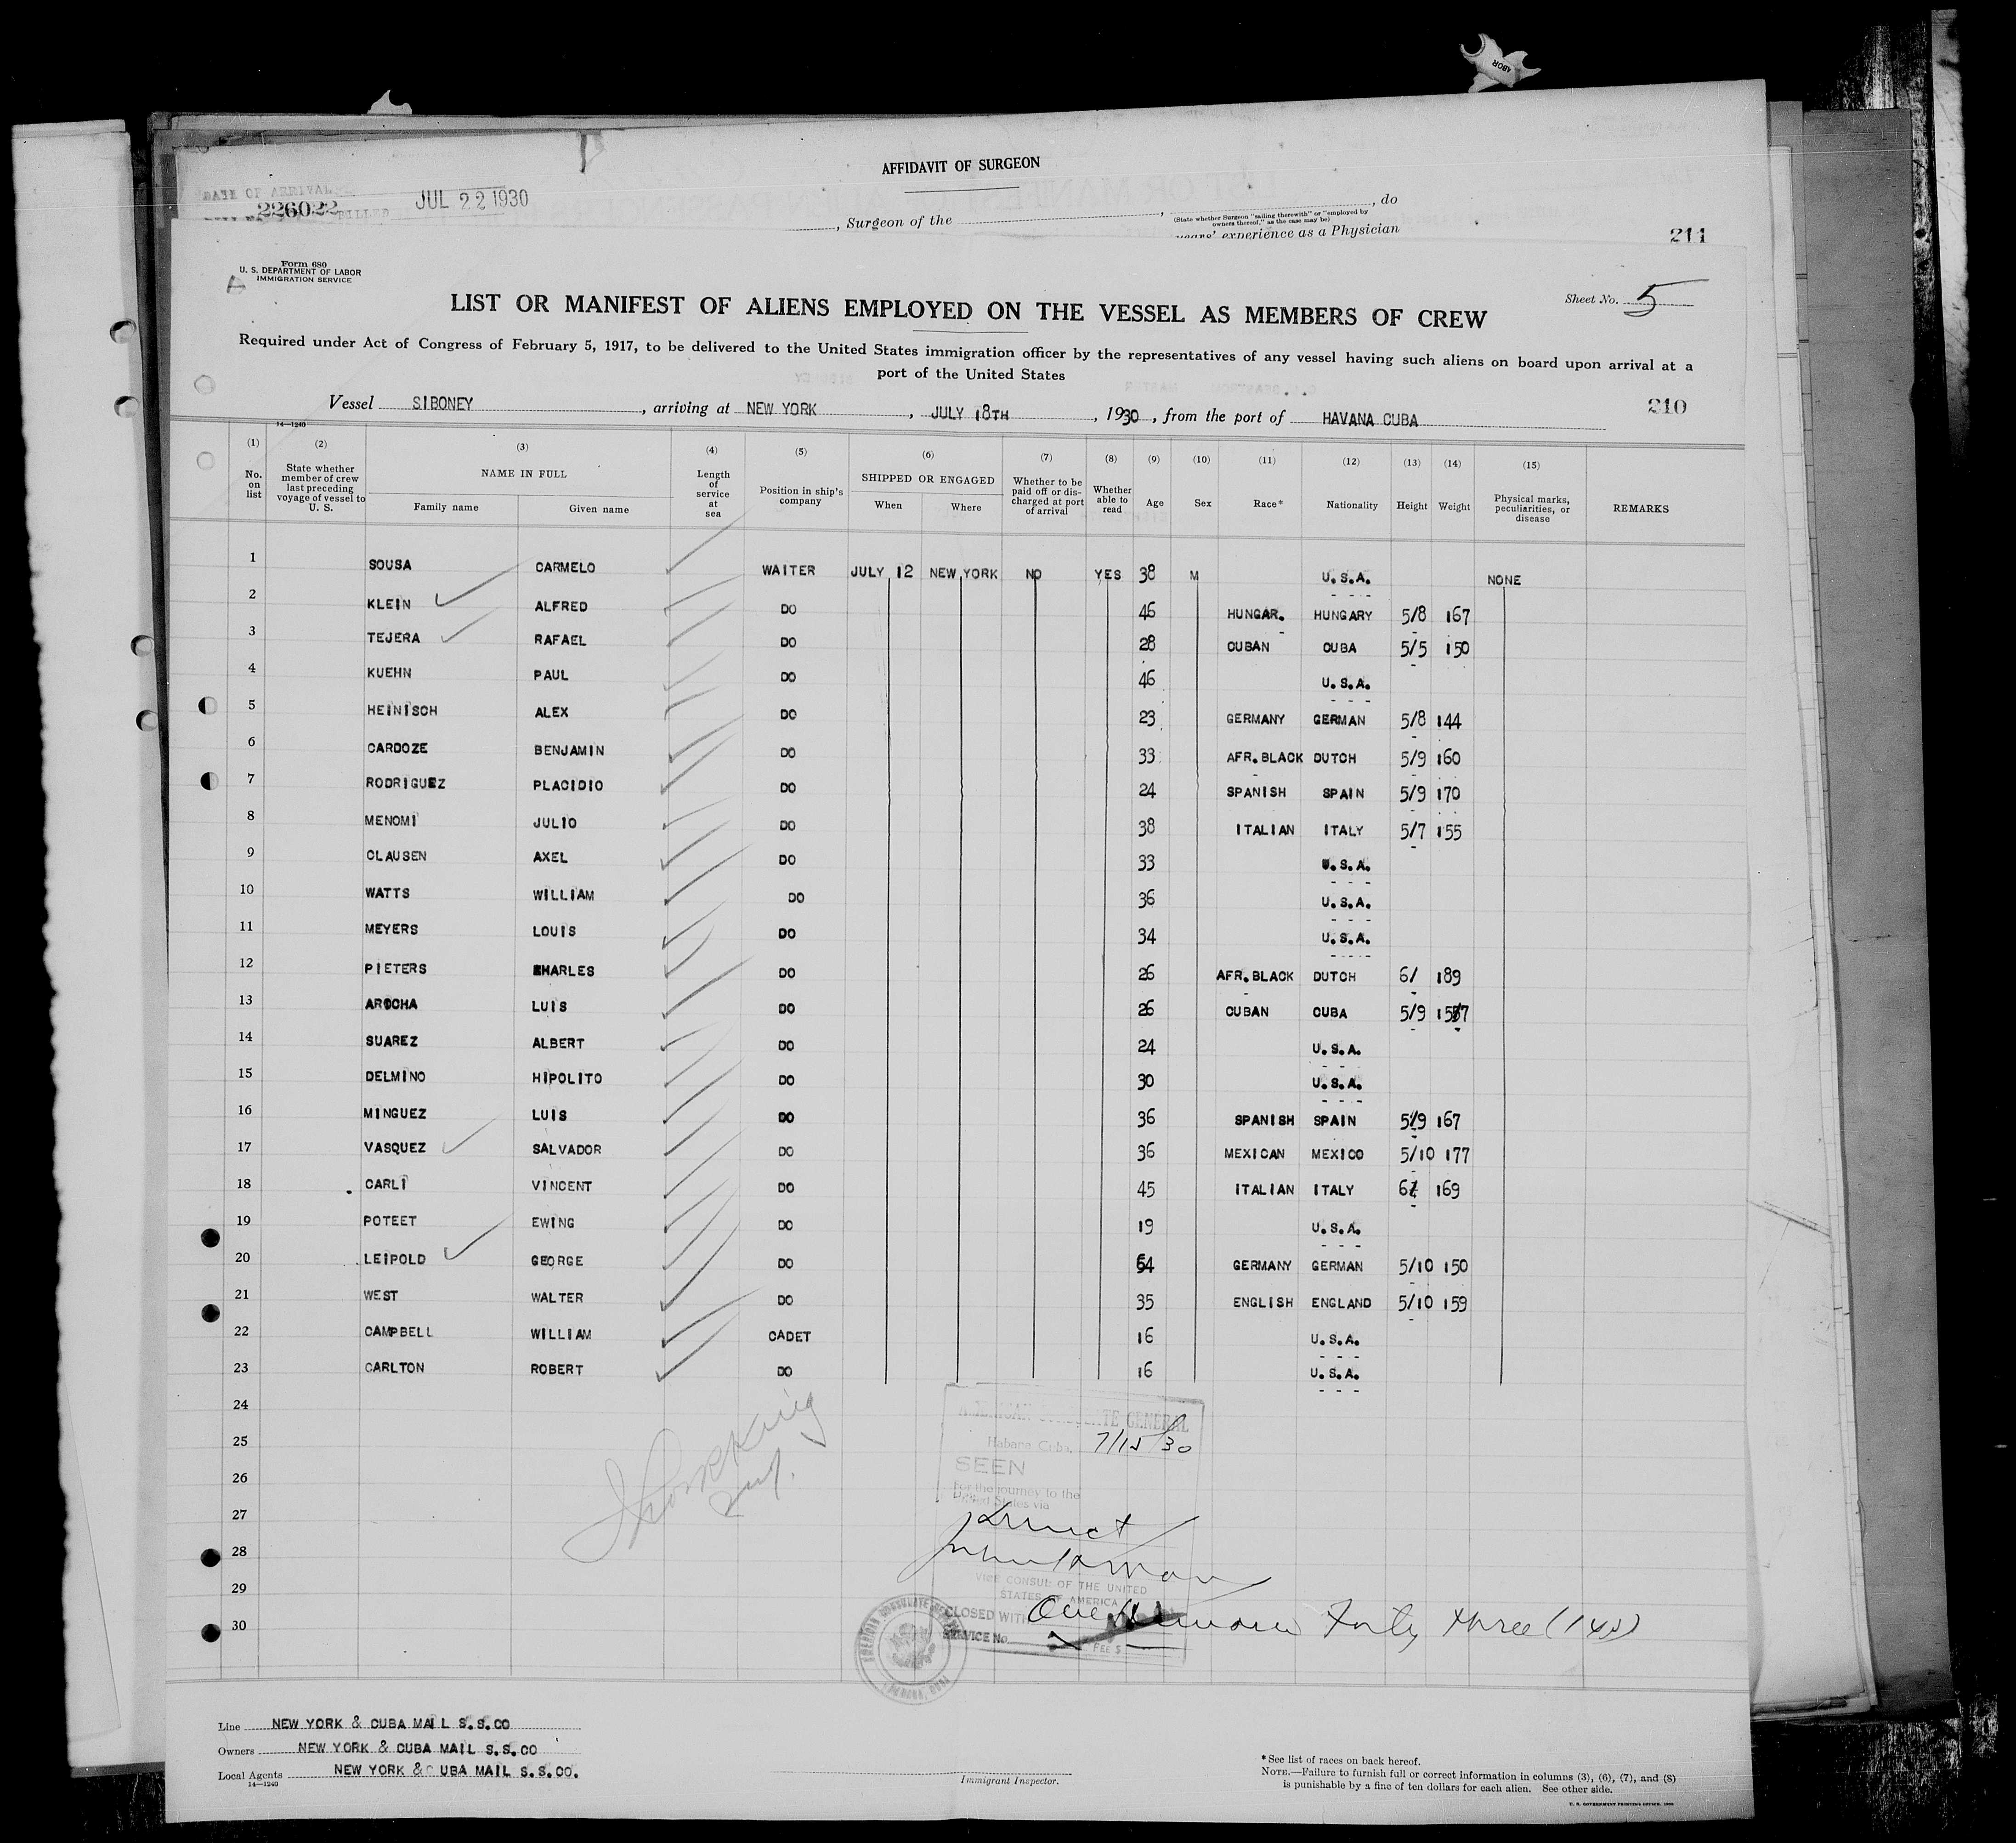 ABOR
AFFIDAVIT OF SURGEON
DATE OF ARRIVAL
226022 FILLED JUL 22 1930
, Surgeon of the , , do
(State whether Surgeon "sailing therewith" or "employed by
owners thereof," as the case may be)
years' experience as a Physician
211
Form 680
U. S. DEPARTMENT OF LABOR
IMMIGRATION SERVICE
A
Sheet No. 5
LIST OR MANIFEST OF ALIENS EMPLOYED ON THE VESSEL AS MEMBERS OF CREW
Required under Act of Congress of February 5, 1917, to be delivered to the United States immigration officer by the representatives of any vessel having such aliens on board upon arrival at a
port of the United States
Vessel SIBONEY, arriving at NEW YORK, JULY 18TH, 1930, from the port of HAVANA CUBA
210
14—1240
(1) (2) (3) (4) (5) (6) (7) (8) (9) (10) (11) (12) (13) (14) (15)
No. on list | State whether member of crew last preceding voyage of vessel to U. S. | NAME IN FULL Family name Given name | Length of service at sea | Position in ship's company | SHIPPED OR ENGAGED When Where | Whether to be paid off or discharged at port of arrival | Whether able to read | Age | Sex | Race* | Nationality | Height | Weight | Physical marks, peculiarities, or disease | REMARKS
1 SOUSA CARMELO WAITER JULY 12 NEW YORK NO YES 38 M U.S.A. NONE
2 KLEIN ALFRED DO 46 HUNGAR. HUNGARY 5/8 167
3 TEJERA RAFAEL DO 28 CUBAN CUBA 5/5 150
4 KUEHN PAUL DO 46 U.S.A.
5 HEINISCH ALEX DO 23 GERMANY GERMAN 5/8 144
6 CARDOZE BENJAMIN DO 33 AFR.BLACK DUTCH 5/9 160
7 RODRIGUEZ PLACIDIO DO 24 SPANISH SPAIN 5/9 170
8 MENOMI JULIO DO 38 ITALIAN ITALY 5/7 155
9 CLAUSEN AXEL DO 33 U.S.A.
10 WATTS WILLIAM DO 36 U.S.A.
11 MEYERS LOUIS DO 34 U.S.A.
12 PIETERS CHARLES DO 26 AFR.BLACK DUTCH 6/ 189
13 AROCHA LUIS DO 26 CUBAN CUBA 5/9 157
14 SUAREZ ALBERT DO 24 U.S.A.
15 DELMINO HIPOLITO DO 30 U.S.A.
16 MINGUEZ LUIS DO 36 SPANISH SPAIN 5/9 167
17 VASQUEZ SALVADOR DO 36 MEXICAN MEXICO 5/10 177
18 CARLI VINCENT DO 45 ITALIAN ITALY 6/ 169
19 POTEET EWING DO 19 U.S.A.
20 LEIPOLD GEORGE DO 54 GERMANY GERMAN 5/10 150
21 WEST WALTER DO 35 ENGLISH ENGLAND 5/10 159
22 CAMPBELL WILLIAM CADET 16 U.S.A.
23 CARLTON ROBERT DO 16 U.S.A.
24
25
26
27
28
29
30
AMERICAN CONSULATE GENERAL
Habana, Cuba, 7/15/30
SEEN
For the journey to the
United States via
direct
VICE CONSUL OF THE UNITED
STATES OF AMERICA
CLOSED WITH One Forty three (143)
SERVICE No. FEE $
AMERICAN CONSULATE GENERAL
HABANA, CUBA
Line NEW YORK & CUBA MAIL S.S.CO
Owners NEW YORK & CUBA MAIL S.S.CO
Local Agents NEW YORK & CUBA MAIL S.S.CO.
14—1240
Immigrant Inspector.
*See list of races on back hereof.
NOTE.—Failure to furnish full or correct information in columns (3), (6), (7), and (8)
is punishable by a fine of ten dollars for each alien. See other side.
U. S. GOVERNMENT PRINTING OFFICE